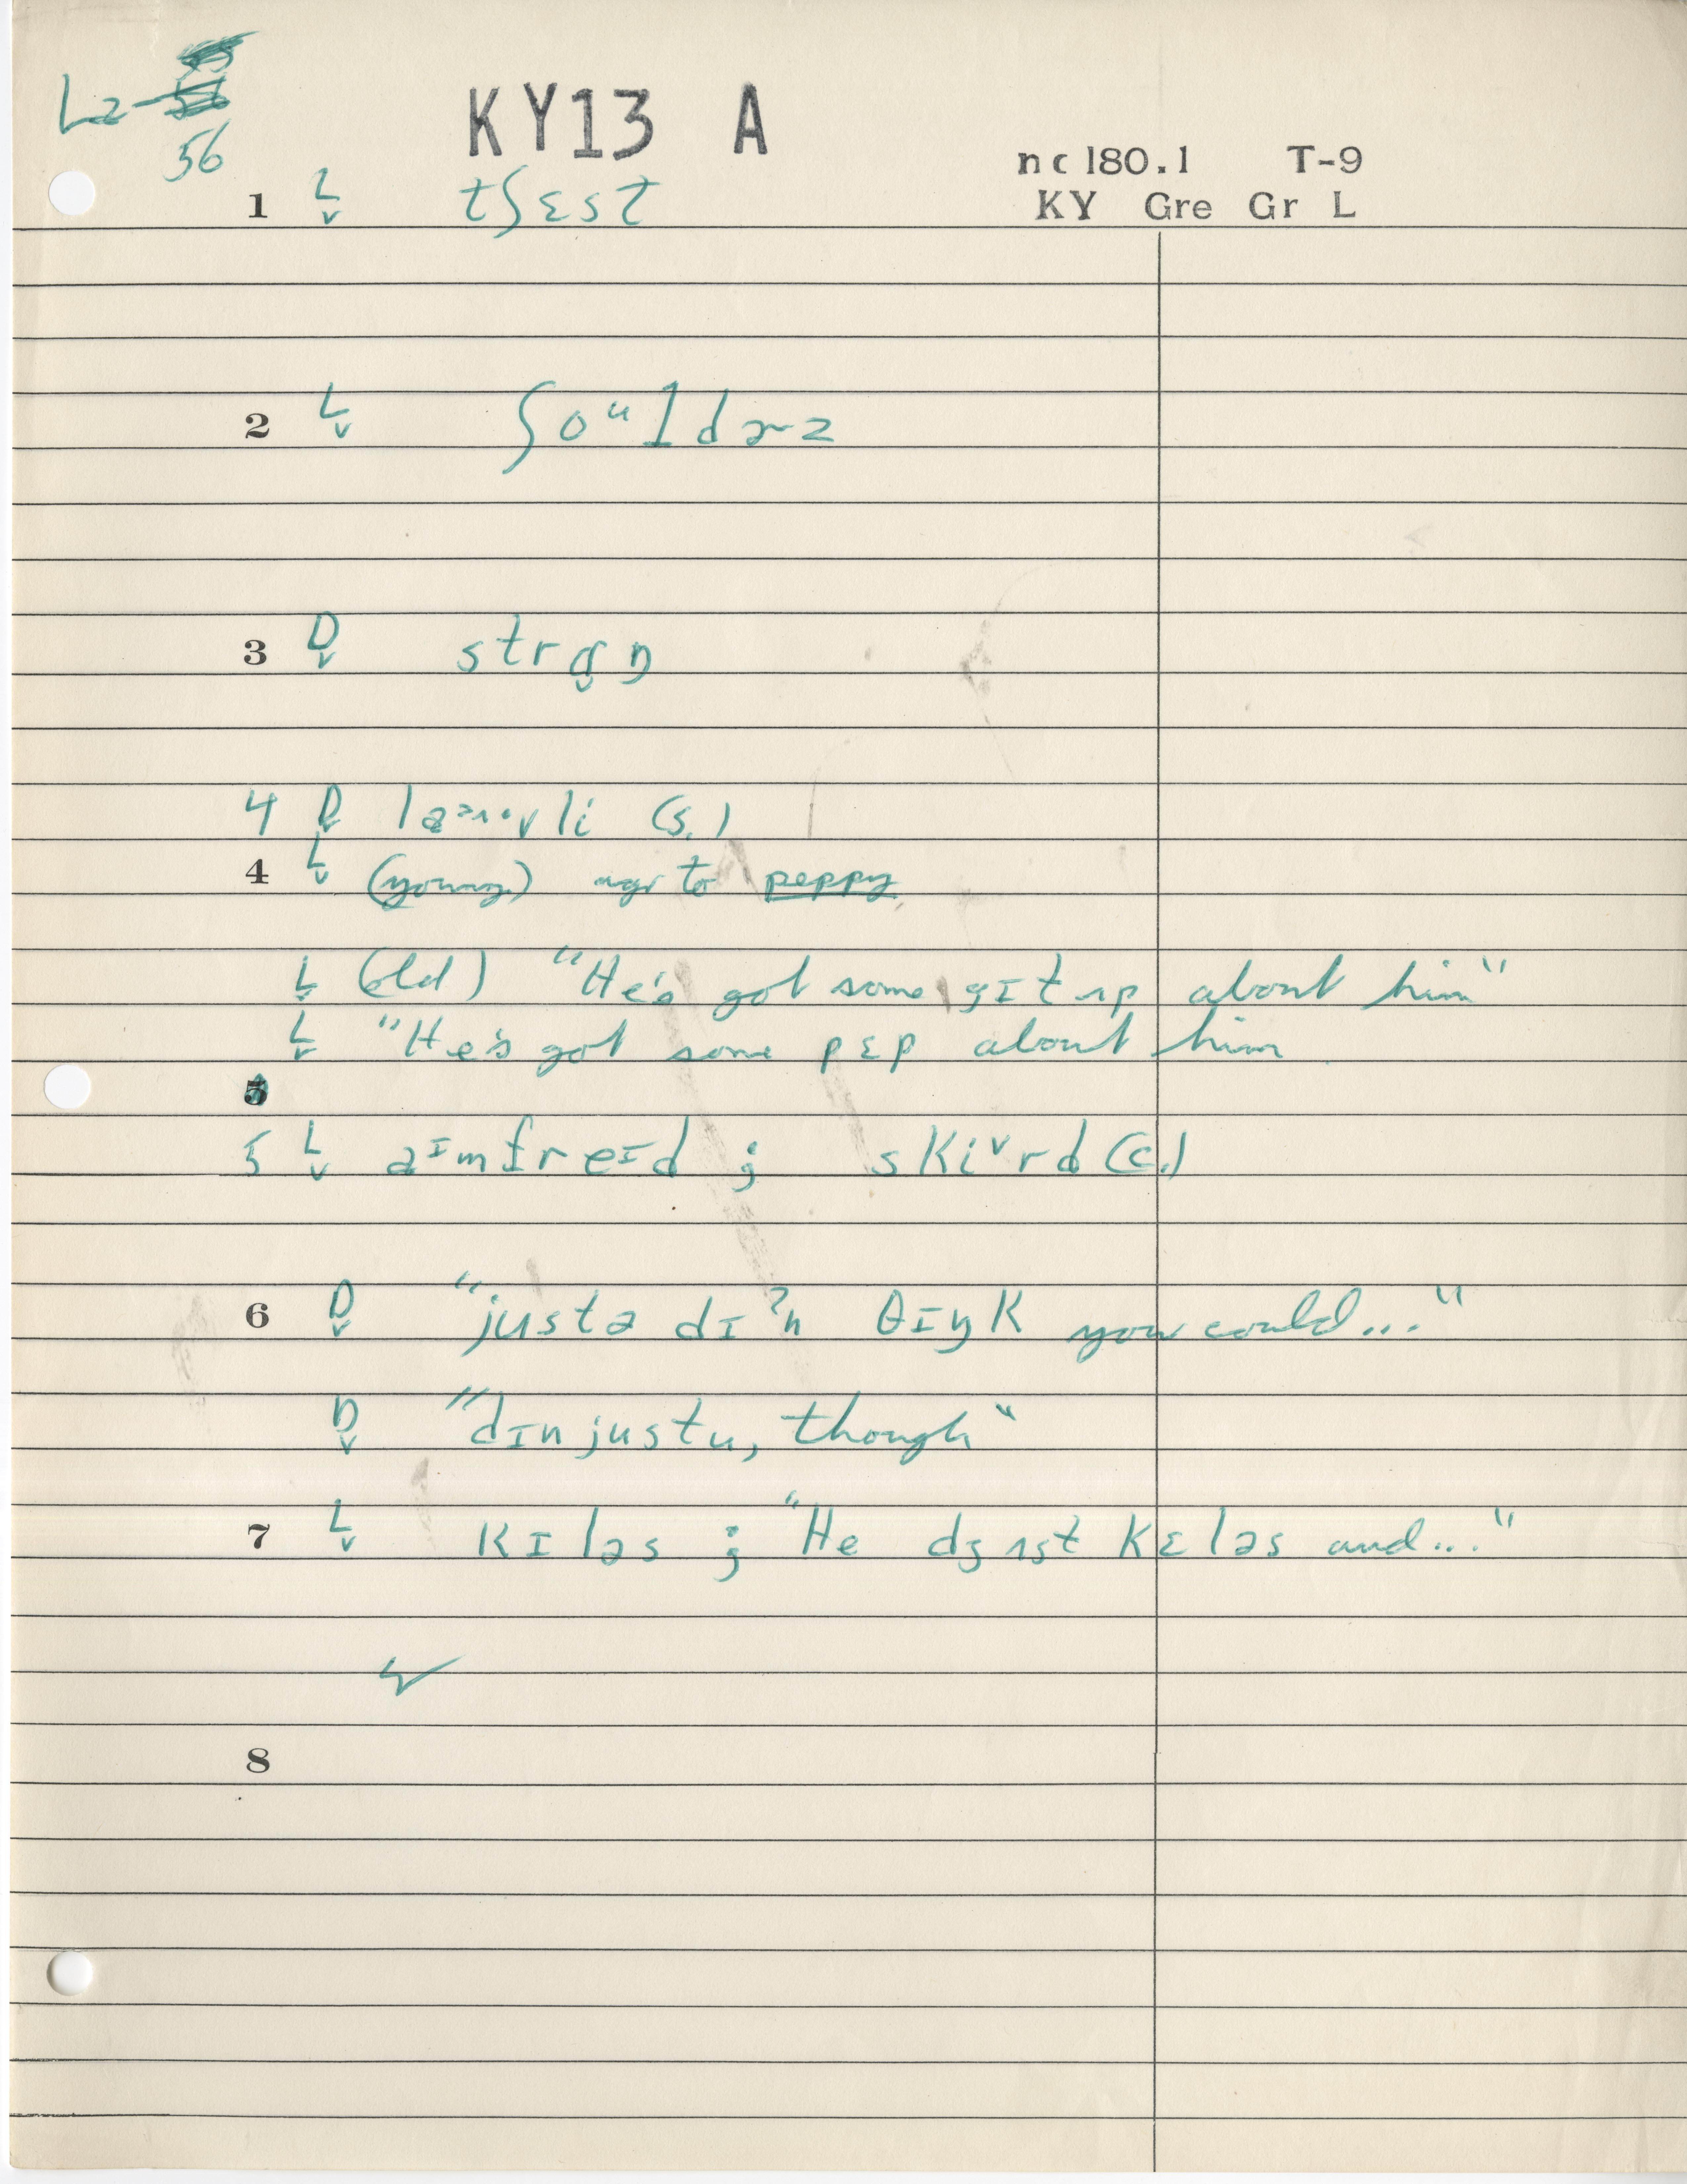 L2-56
KY13 A
nc 180.1 T-9
1 L̬ tʃɛst KY Gre Gr L
2 L̬ ʃoᵘldɚz
3 D̬ strɑ̬ŋ
4 D̬ (s.)
4 L̬ (young) agr to peppy
L̬ (old) "He's got some gɪtʌp about him"
L̬ "He's got some pɛp about him
5
5 L̬ aɪmfreɪd ; skiᵛrd (c.)
6 D̬ "justə dɪʔn θɪŋk you could..."
D̬ "dɪnjustu, though"
7 L̬ kɪləs ; "He dʒʌst kɛləs and..."
8